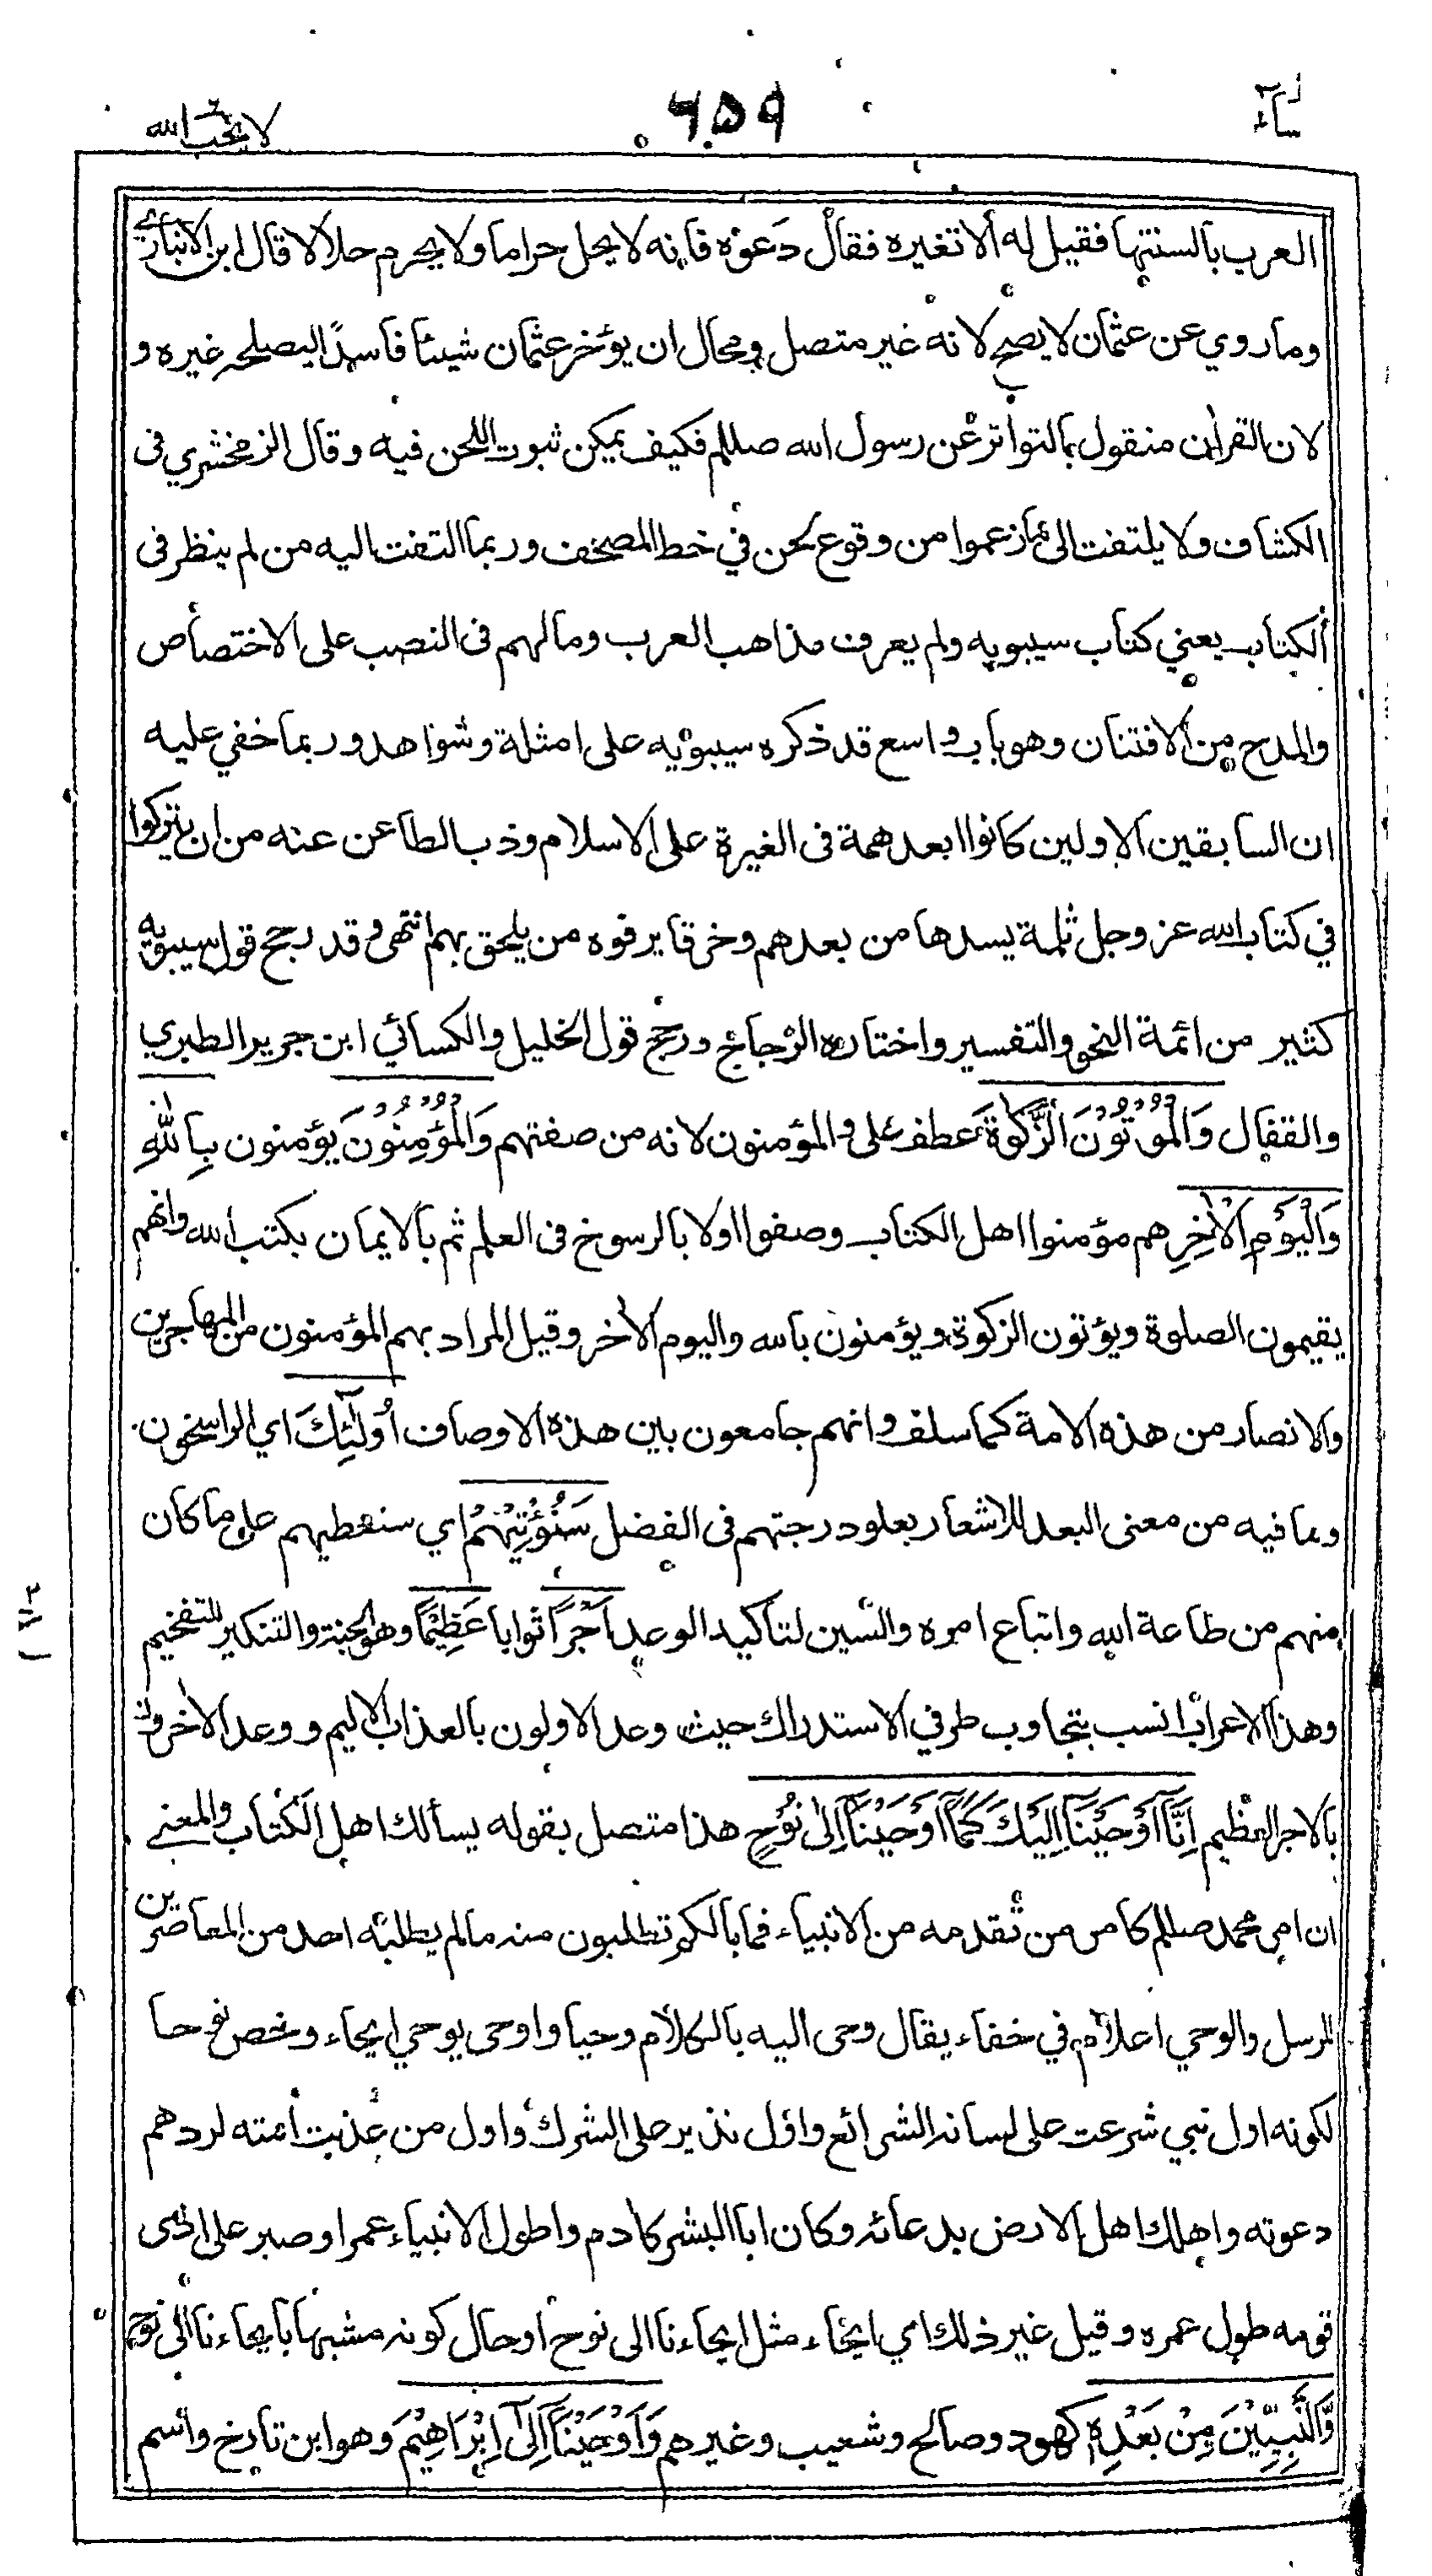 النساء ٦٥٩ لا يحب الله
العرب بالسنتها فقيل له ألا تغيره فقال دعوه فانه لا يحل حراما ولا يحرم حلالا قال ابن الانباري
وما روي عن عثمان لا يصح لانه غير متصل ومحال ان يؤخر عثمان شيئا فاسدا ليصلحه غيره و
لان القرآن منقول بالتواتر عن رسول الله صللم فكيف يمكن ثبوت اللحن فيه وقال الزمخشري فى
الكشاف ولا يلتفت الى ما زعموا من وقوع لحن في خط المصحف وربما التفت اليه من لم ينظر فى
ألكتاب يعني كتاب سيبويه ولم يعرف مذاهب العرب وما لهم فى النصب على الاختصاص
والمدح من الافتنان وهو باب واسع قد ذكره سيبويه على امثلة وشواهد وربما خفي عليه
ان السابقين الاولين كانوا ابعد همة فى الغيرة على الاسلام وذب الطاعن عنه من ان يتركوا
في كتاب الله عز وجل ثلمة يسدها من بعدهم وخرقا يرفوه من يلحق بهم انتهى وقد رجح قول سيبويه
كثير من ائمة النحو والتفسير واختاره الزجاج ورجح قول الخليل والكسائي ابن جرير الطبري
والقفال وَالْمُؤْتُوْنَ الزَّكٰوةَ عطف على والمؤمنون لانه من صفتهم وَالْمُؤْمِنُوْنَ يؤمنون بِاللّٰهِ
وَالْيَوْمِ الْاٰخِرِ هم مؤمنوا اهل الكتاب وصفوا اولا بالرسوخ فى العلم ثم بالايمان بكتب الله وانهم
يقيمون الصلوة ويؤتون الزكوة ويؤمنون بالله واليوم الاٰخر وقيل المراد بهم المؤمنون من المهاجرين
والانصار من هذه الامة كما سلف وانهم جامعون بين هذه الاوصاف اُولٰٓئِكَ اي الراسخون
وما فيه من معنى البعد للاشعار بعلو درجتهم فى الفضل سَنُؤْتِيْهِمْ اي سنعطيهم على ما كان
منهم من طاعة الله واتباع امره والسين لتاكيد الوعد اَجْرًا ثوابا عَظِيْمًا وهو الجنة والتنكير للتفخيم
وهذا الاعراب انسب بتجاوب طرفي الاستدراك حيث وعد الاولون بالعذاب الاليم ووعد الاٰخرون
بالاجر العظيم اِنَّآ اَوْحَيْنَآ اِلَيْكَ كَمَآ اَوْحَيْنَآ اِلٰى نُوْحٍ هذا متصل بقوله يسألك اهل الكتاب والمعنى
ان امر محمد صللم كامر من تقدمه من الانبياء فما بالكم تطلبون منه مالم يطلبه احد من المعاصرين
للرسل والوحي اعلام في خفاء يقال وحى اليه بالكلام وحيا واوحى يوحي ايحاء وخص نوحا
لكونه اول نبي شرعت على لسانه الشرائع واول نذير على الشرك واول من عذبت امته لردهم
دعوته واهلك اهل الارض بدعائه وكان ابا البشر كادم واطول الانبياء عمرا وصبر على اذى
قومه طول عمره وقيل غير ذلك اي ايحاء مثل ايحاءنا الى نوح او حال كونه مشبها بايحاءنا الى نوح
وَّالنَّبِيّٖنَ مِنْۢ بَعْدِهٖ كهود وصالح وشعيب وغيرهم وَاَوْحَيْنَآ اِلٰٓى اِبْرَاهِيْمَ وهو ابن تارخ واسم